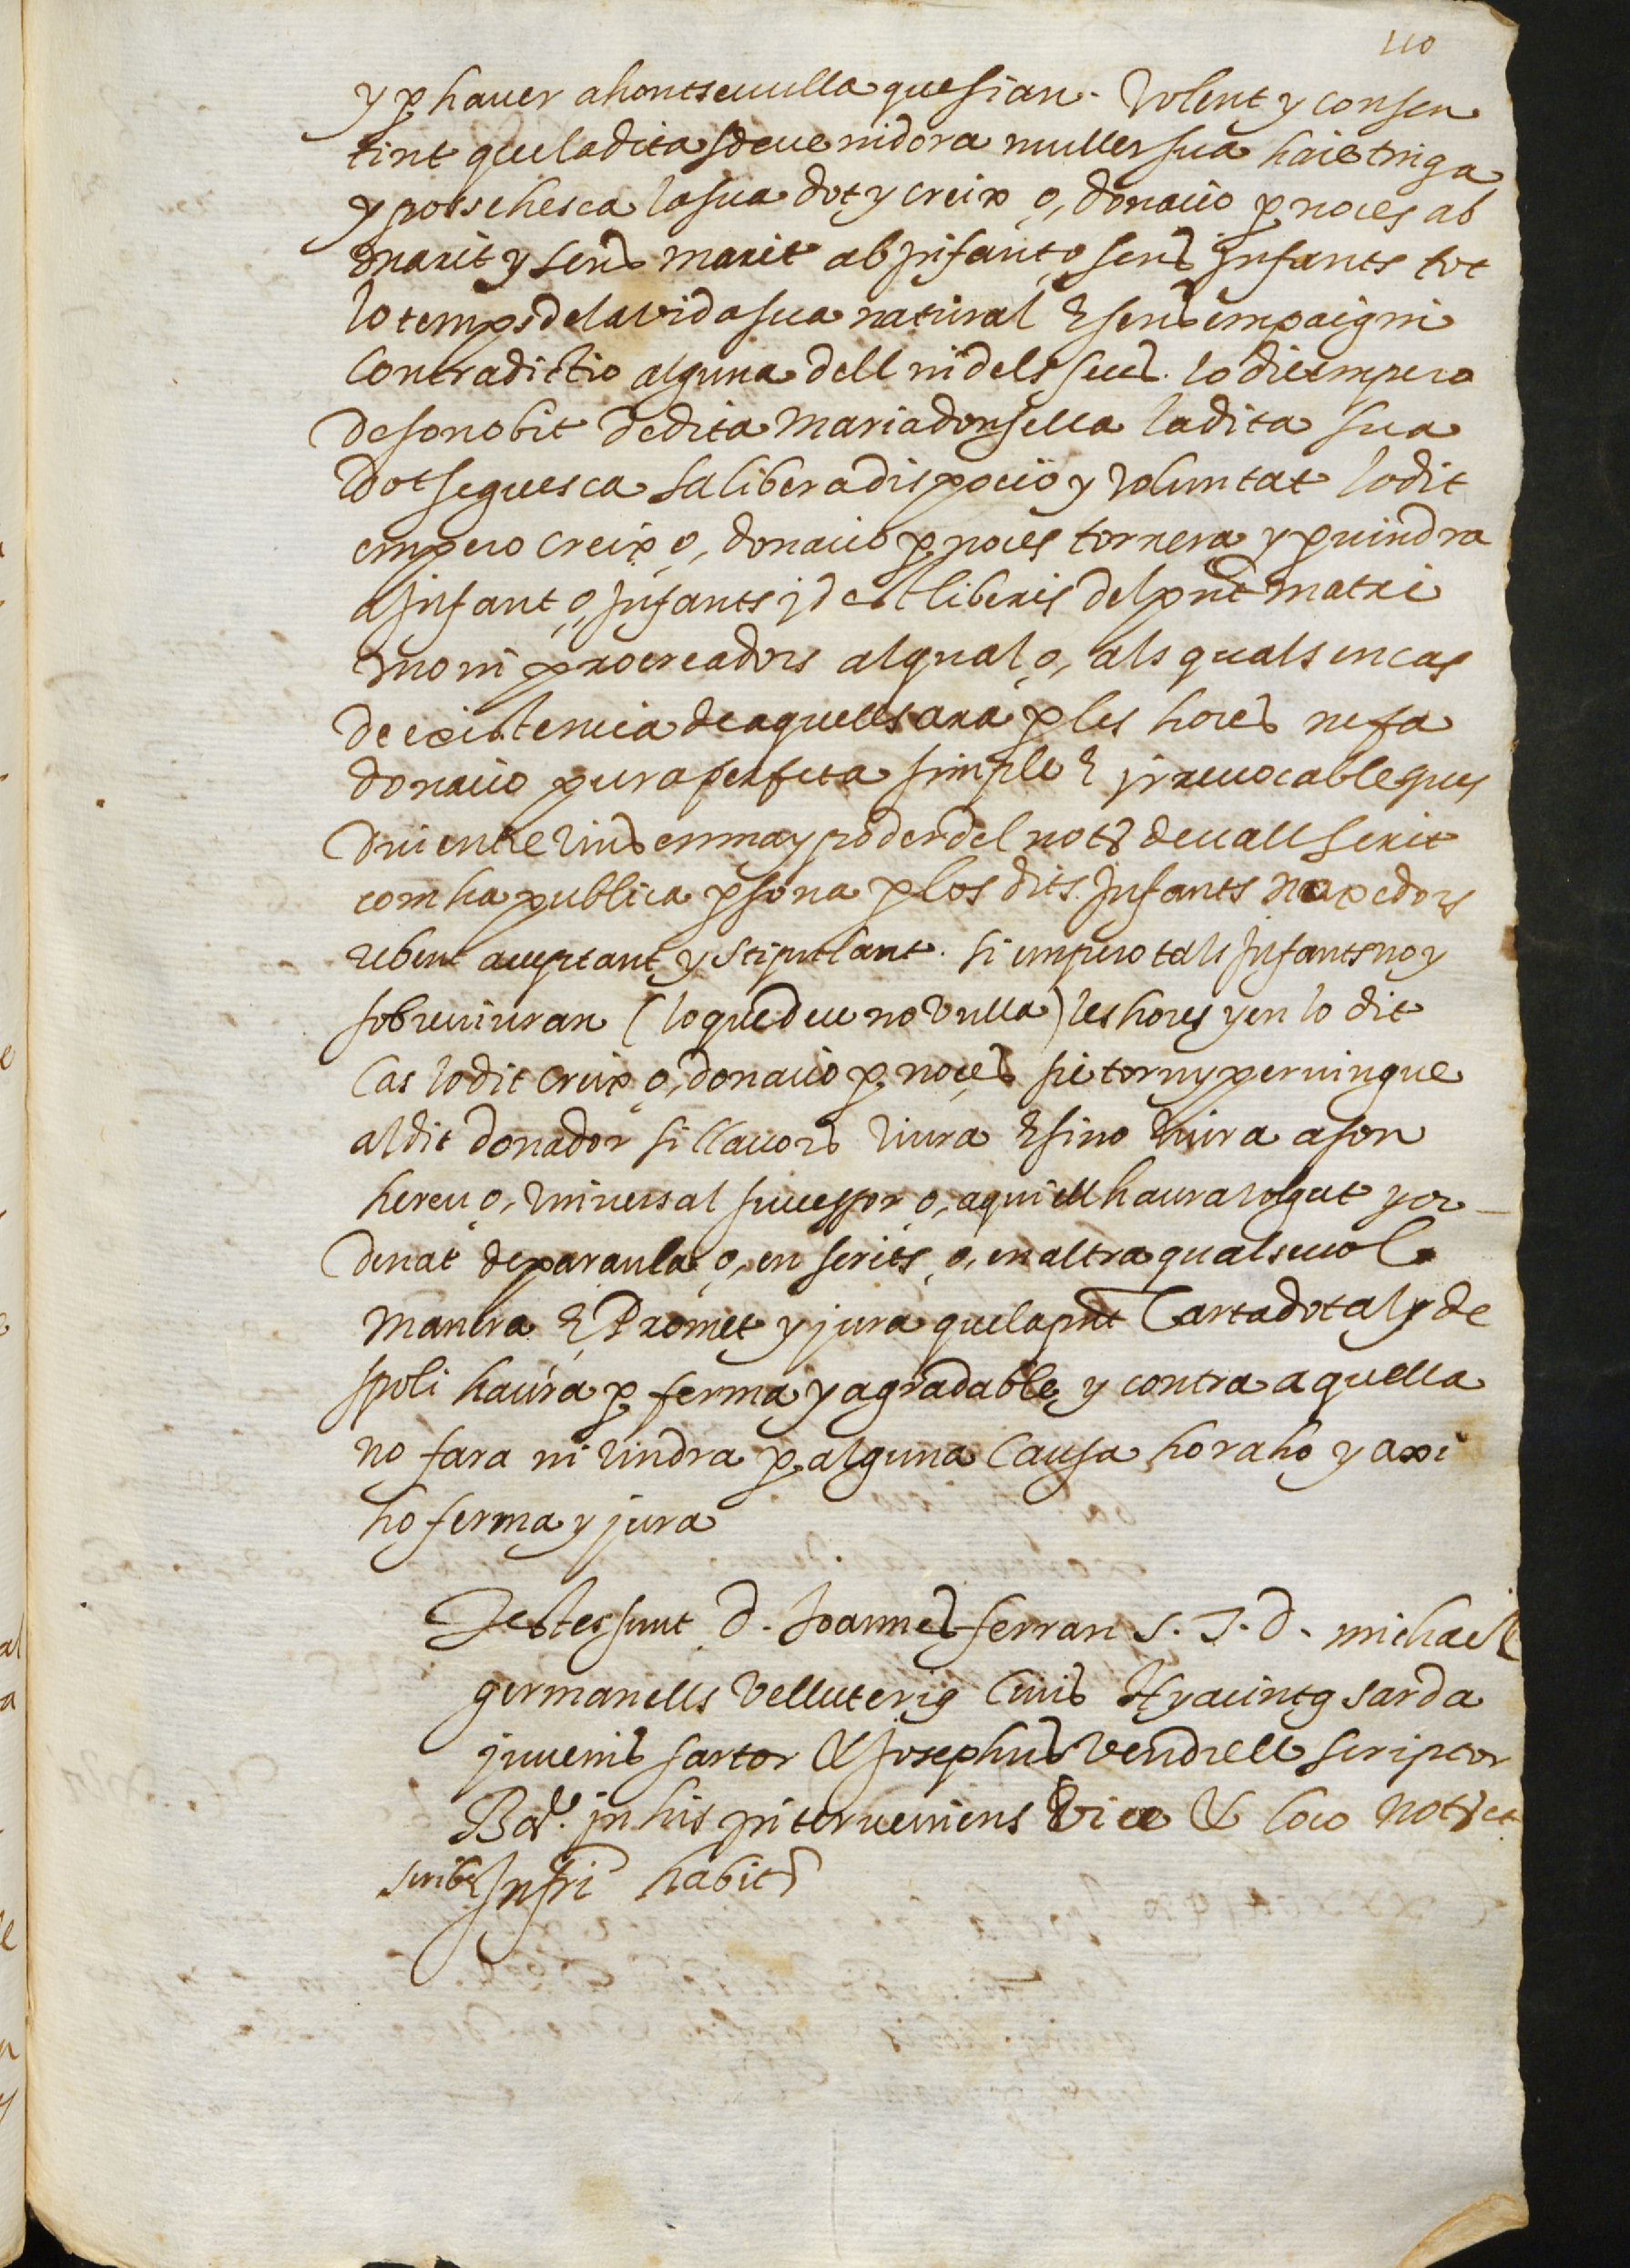 110
y p hauer ahontseuulla que sian. Volent y consen
tint que la dita sdeuenidora muller sua haie tinga
y possehesca la sua dot y creix o, donacio p noces ab
marit y sens marit ab jnfant o, sens jnfants tot
lo temps de la vida sua natural E sens empaig ni
Contradictio alguna dell ni dels seus. lo die empero
de son obit de dita Maria donsella la dita sua
dot seguesca sa libera dispocio y voluntat lo dit
empero creix o, donacio p noces tornera y pruindra
a jnfant o, jnfants jd est liberis del pnt matri
moni procreadors al qual o, als quals en cas
de existencia de aquells ara p les hores ne fa
donacio pura perfeta simple E jrreuocable ques
diu entre vius en ma y poder del notr deuall scrit
com ha publica psona p los dits jnfants naxedors
rebent acceptant y stipulant. si empero tals jnfants no y
sobreuiuran (lo que deu no vulla) les hores y en lo dit
Cas lo dit creix o, donacio p noces sie torn y peruingue
al dit donador si llauors viura E si no viura a son
hereu o, vniuersal successor o, a qui ell haura volgut y or
denat de paraula o, en scrits o, en altra qualseuol
manera E Promet y jura que la pnt Carta dotal y de
spoli haura p ferma y agradable y contra aquella
no fara ni vindra p alguna Causa ho raho y axi
ho ferma y jura
Testes sunt d. Joannes ferran S. T. d. michael
germanells velluterig Ciuis Hyacintg sarda
juuenis sartor & Josephus vendrell scriptor
Bar. jn his jnterueniens Vice & loco Notr et
scribe Jnfri habitr